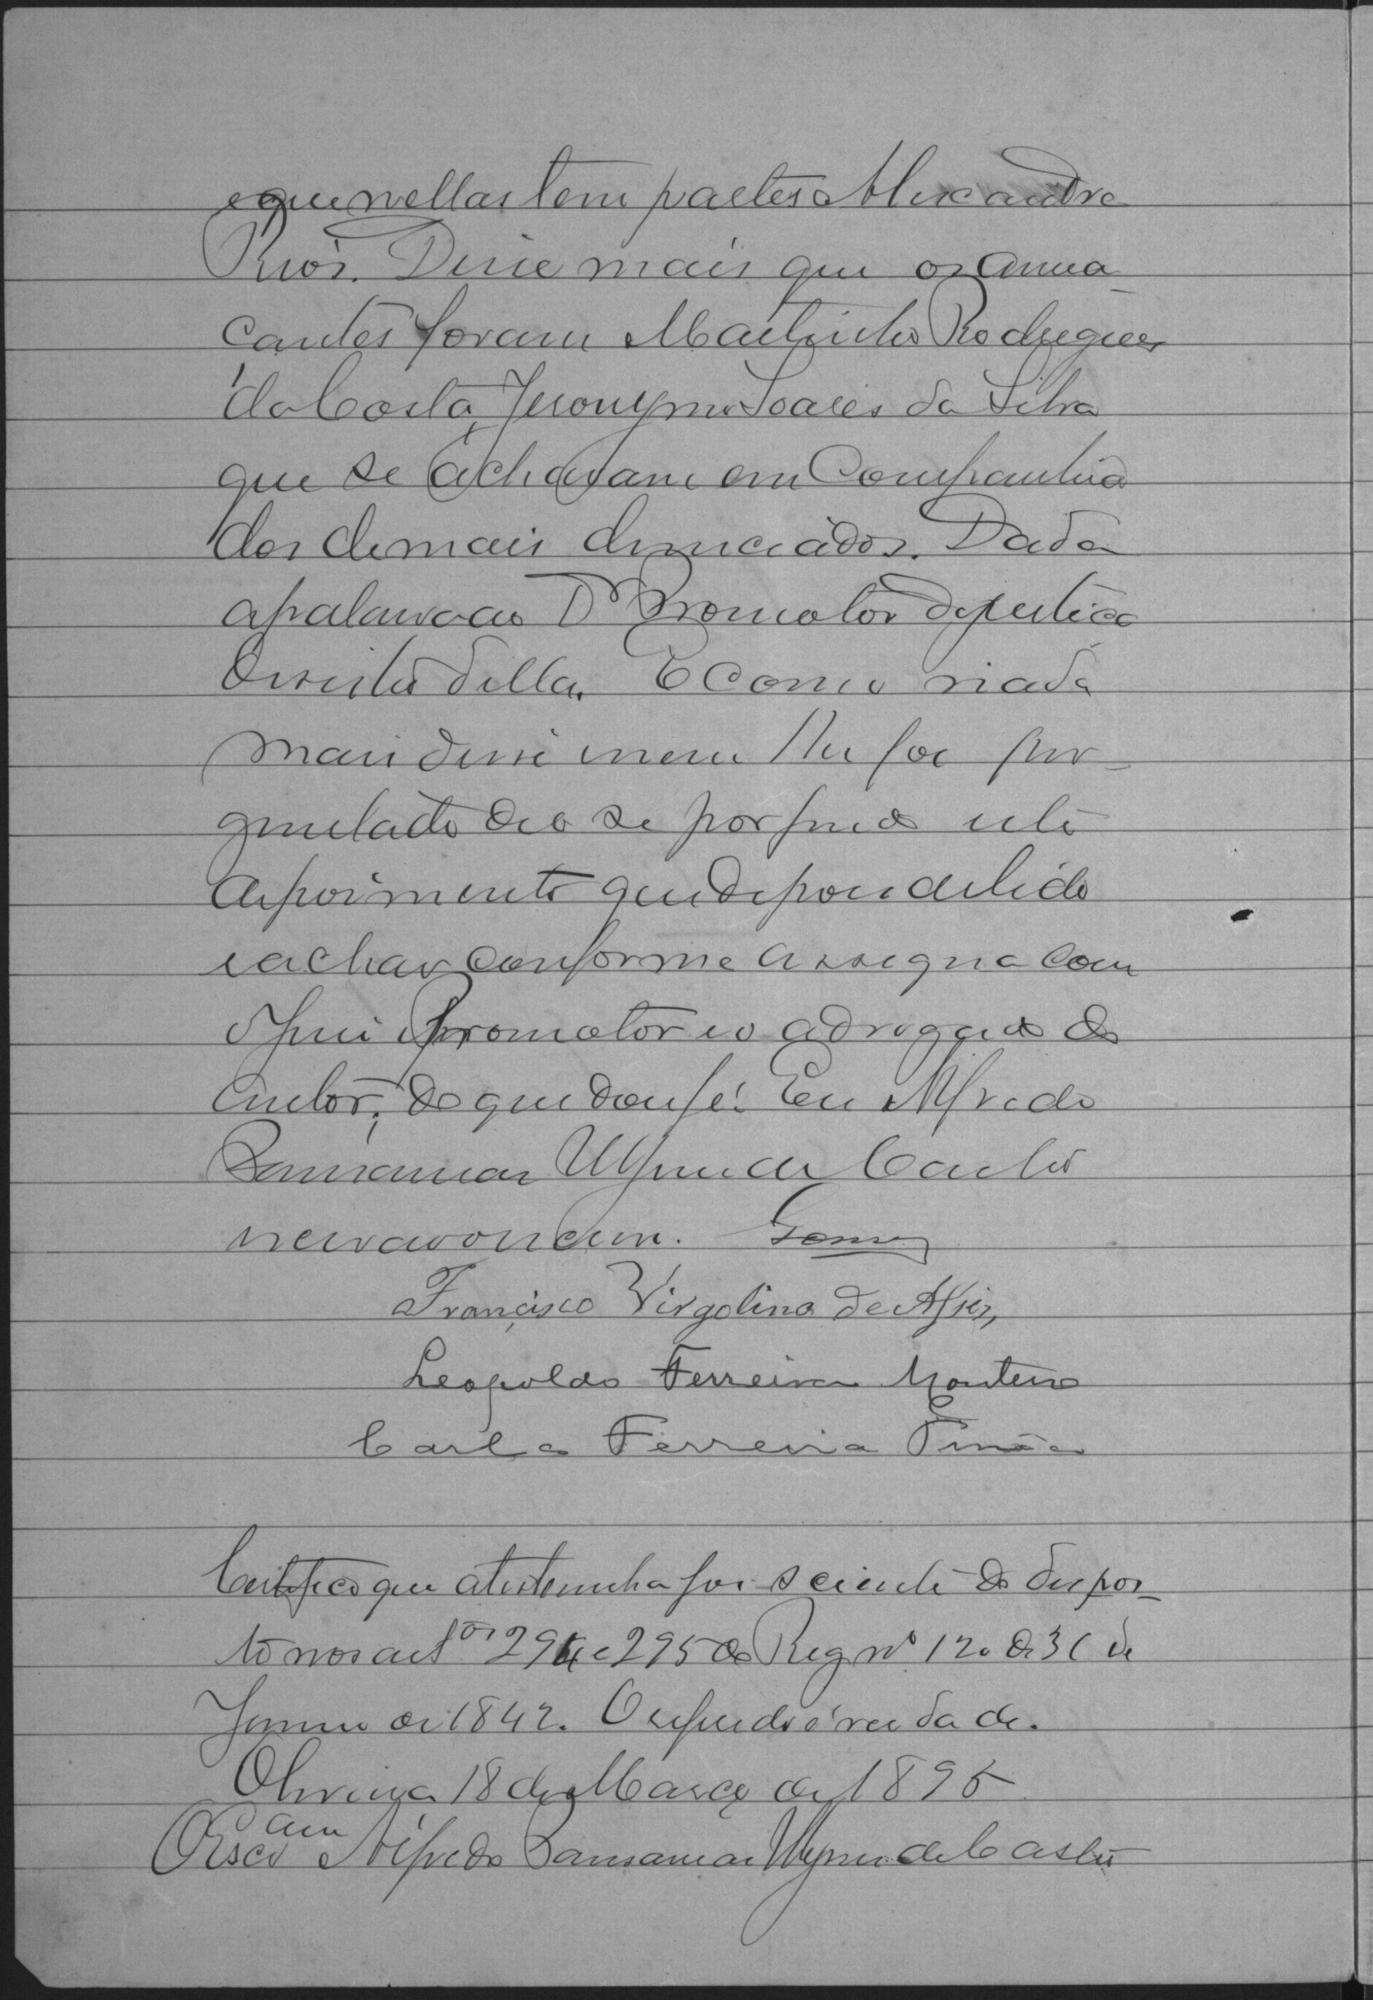 e que nellas tem partes Alexandre
Rios. Disse mais que os amea
çantes foram Martinho Rodrigues
da Costa, Jeronymo Soares da Silva
que se achavam em Companhia
dos demais denunciados. Dada
a palavra ao Dr Promotor de justiça
desistio della. E como nada
mais disse nem lhe foi per-
guntado deo se por findo este
depoimento que depois de lido
e achar conforme assigna com
o juiz Promotor e o advogado do
autor, do que dou fé. Eu Alfredo
Castro
Gomes
Francisco Virgolino de Assis,
Leopoldo Ferreira Monteiro
Carlos Ferreira
Certifico que a testemunha foi sciente do dispos-
to nos arts 294 e 295 do Reg nº 120 de 31 de
Janro de 1842. O referido é verdade.
Oliveira 18 de Março de 1895
O Escram Alfredo de Castro